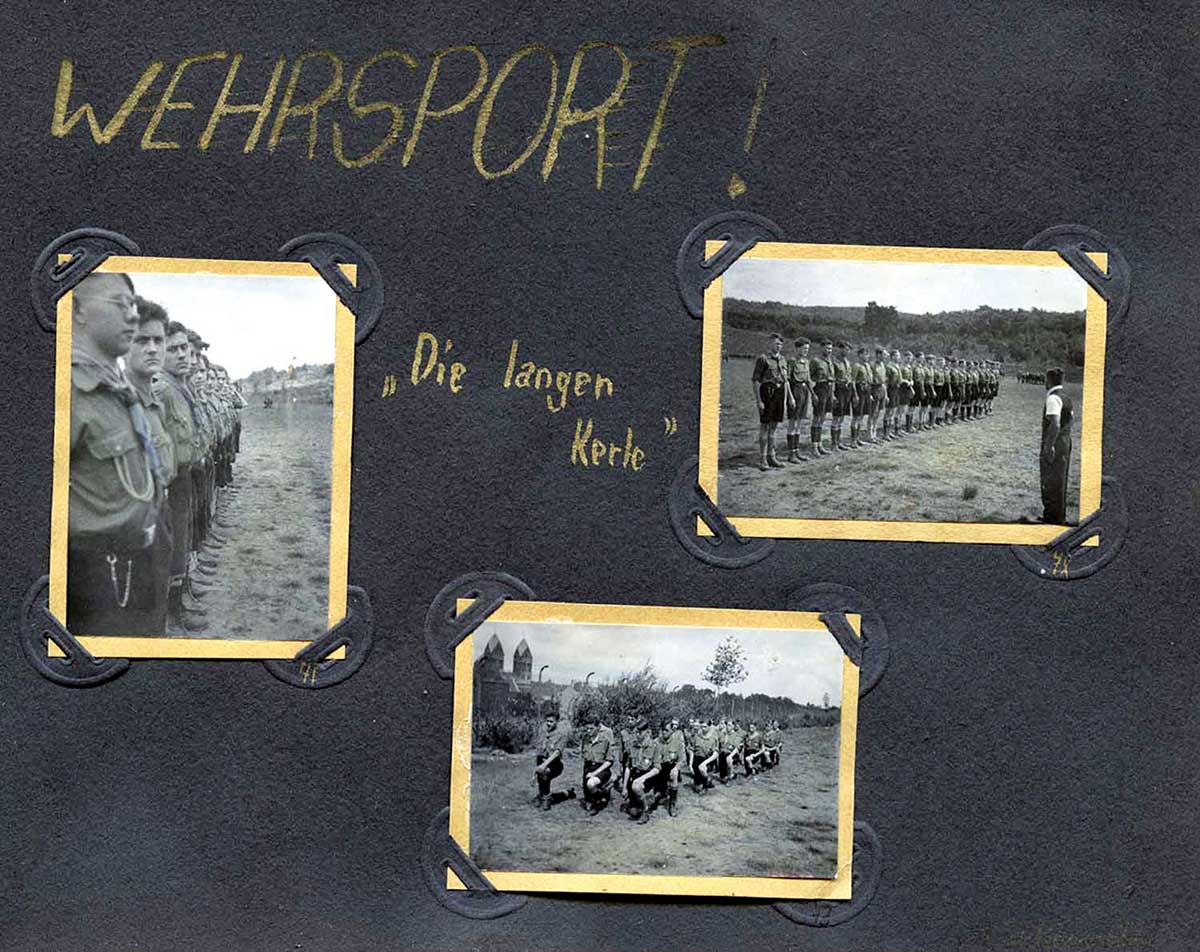 WEHRSPORT!
„Die langen
Kerle”